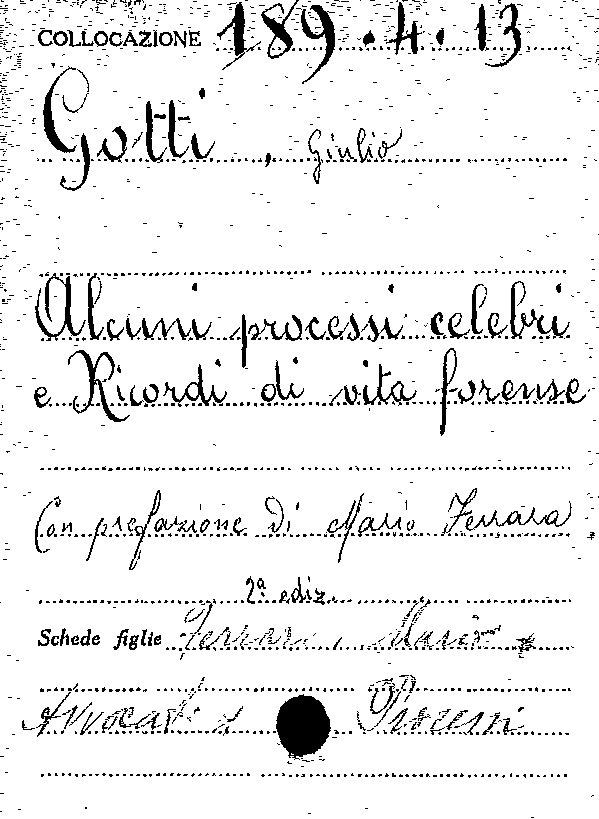 COLLOCAZIONE 189.4.13
Gotti, Giulio
Alcuni processi celebri
e Ricordi di vita forense
Con prefazione di Mario Ferrara
2ª ediz.
Schede figlie Ferrara, Mario
Avvocati Processi